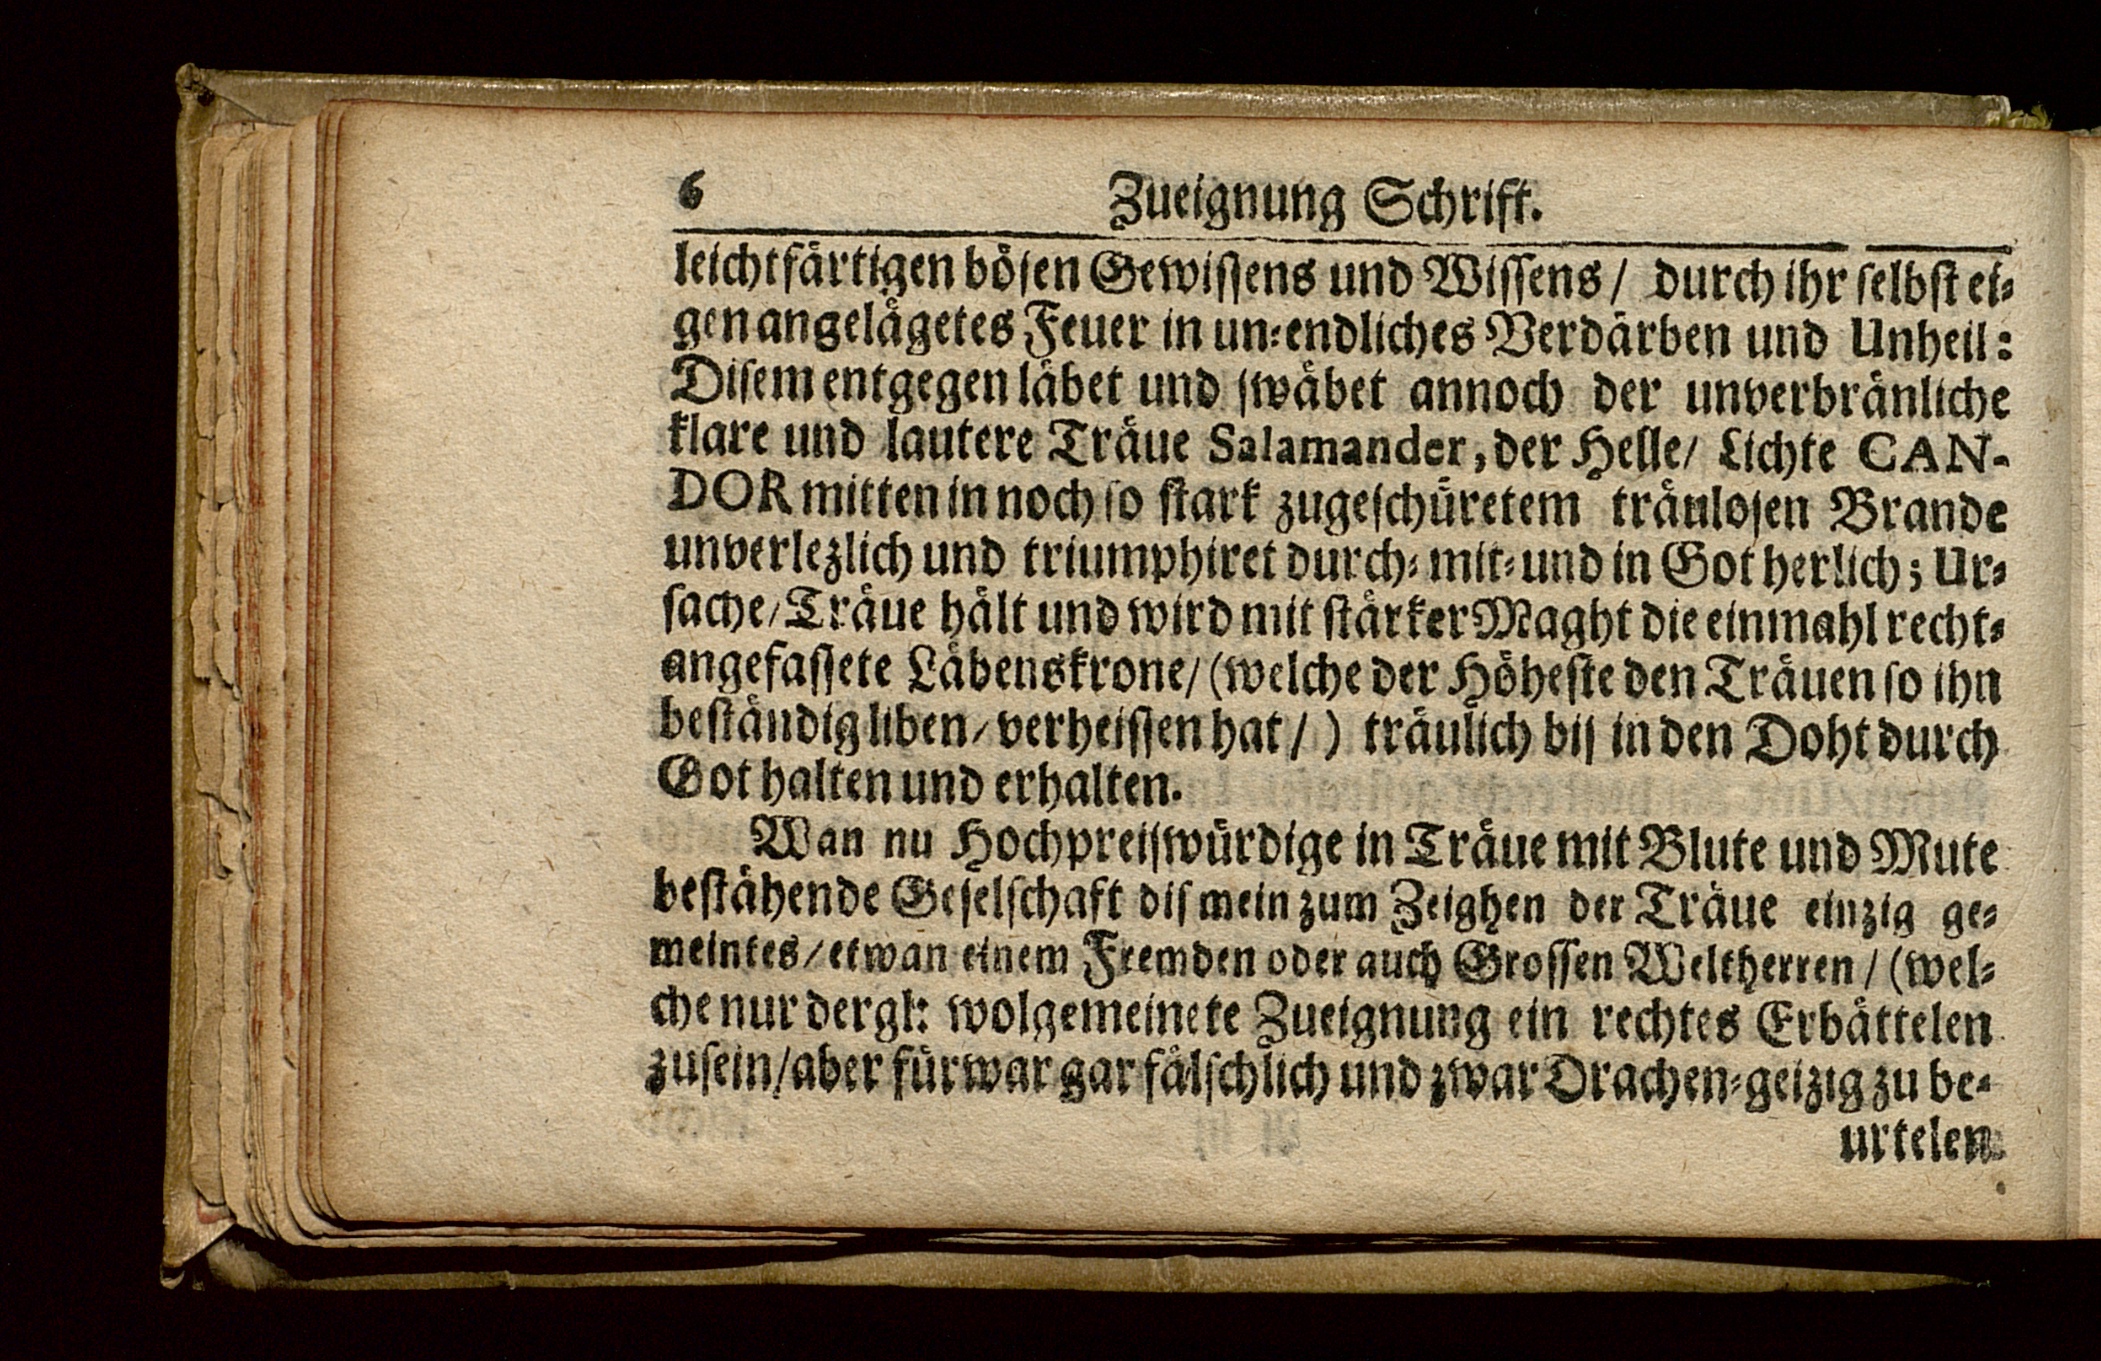 6 Zueignung Schrift.
leichtfärtigen bösen Gewissens und Wissens / durch ihr selbst ei-
gen angelägetes Feuer in un-endliches Verdärben und Unheil:
Disem entgegen läbet und swäbet annoch der unverbränliche
klare und lautere Träue Salamander, der Helle / Lichte CAN-
DOR mitten in noch so stark zugeschüretem träulosen Brande
unverlezlich und triumphiret durch- mit- und in Got herlich; Ur-
sache / Träue hält und wird mit stärker Maght die einmahl recht-
angefassete Läbenskrone / (welche der Höheste den Träuen so ihn
beständig liben / verheissen hat / ) träulich bis in den Doht durch
Got halten und erhalten.
Wan nu Hochpreiswürdige in Träue mit Blute und Mute
bestähende Geselschaft dis mein zum Zeighen der Träue einzig ge-
meintes / etwan einem Fremden oder auch Grossen Weltherren / (wel-
che nur dergl: wolgemeinete Zueignung ein rechtes Erbättelen
zusein / aber fürwar gar fälschlich und zwar Drachen-geizig zu be-
urtelen